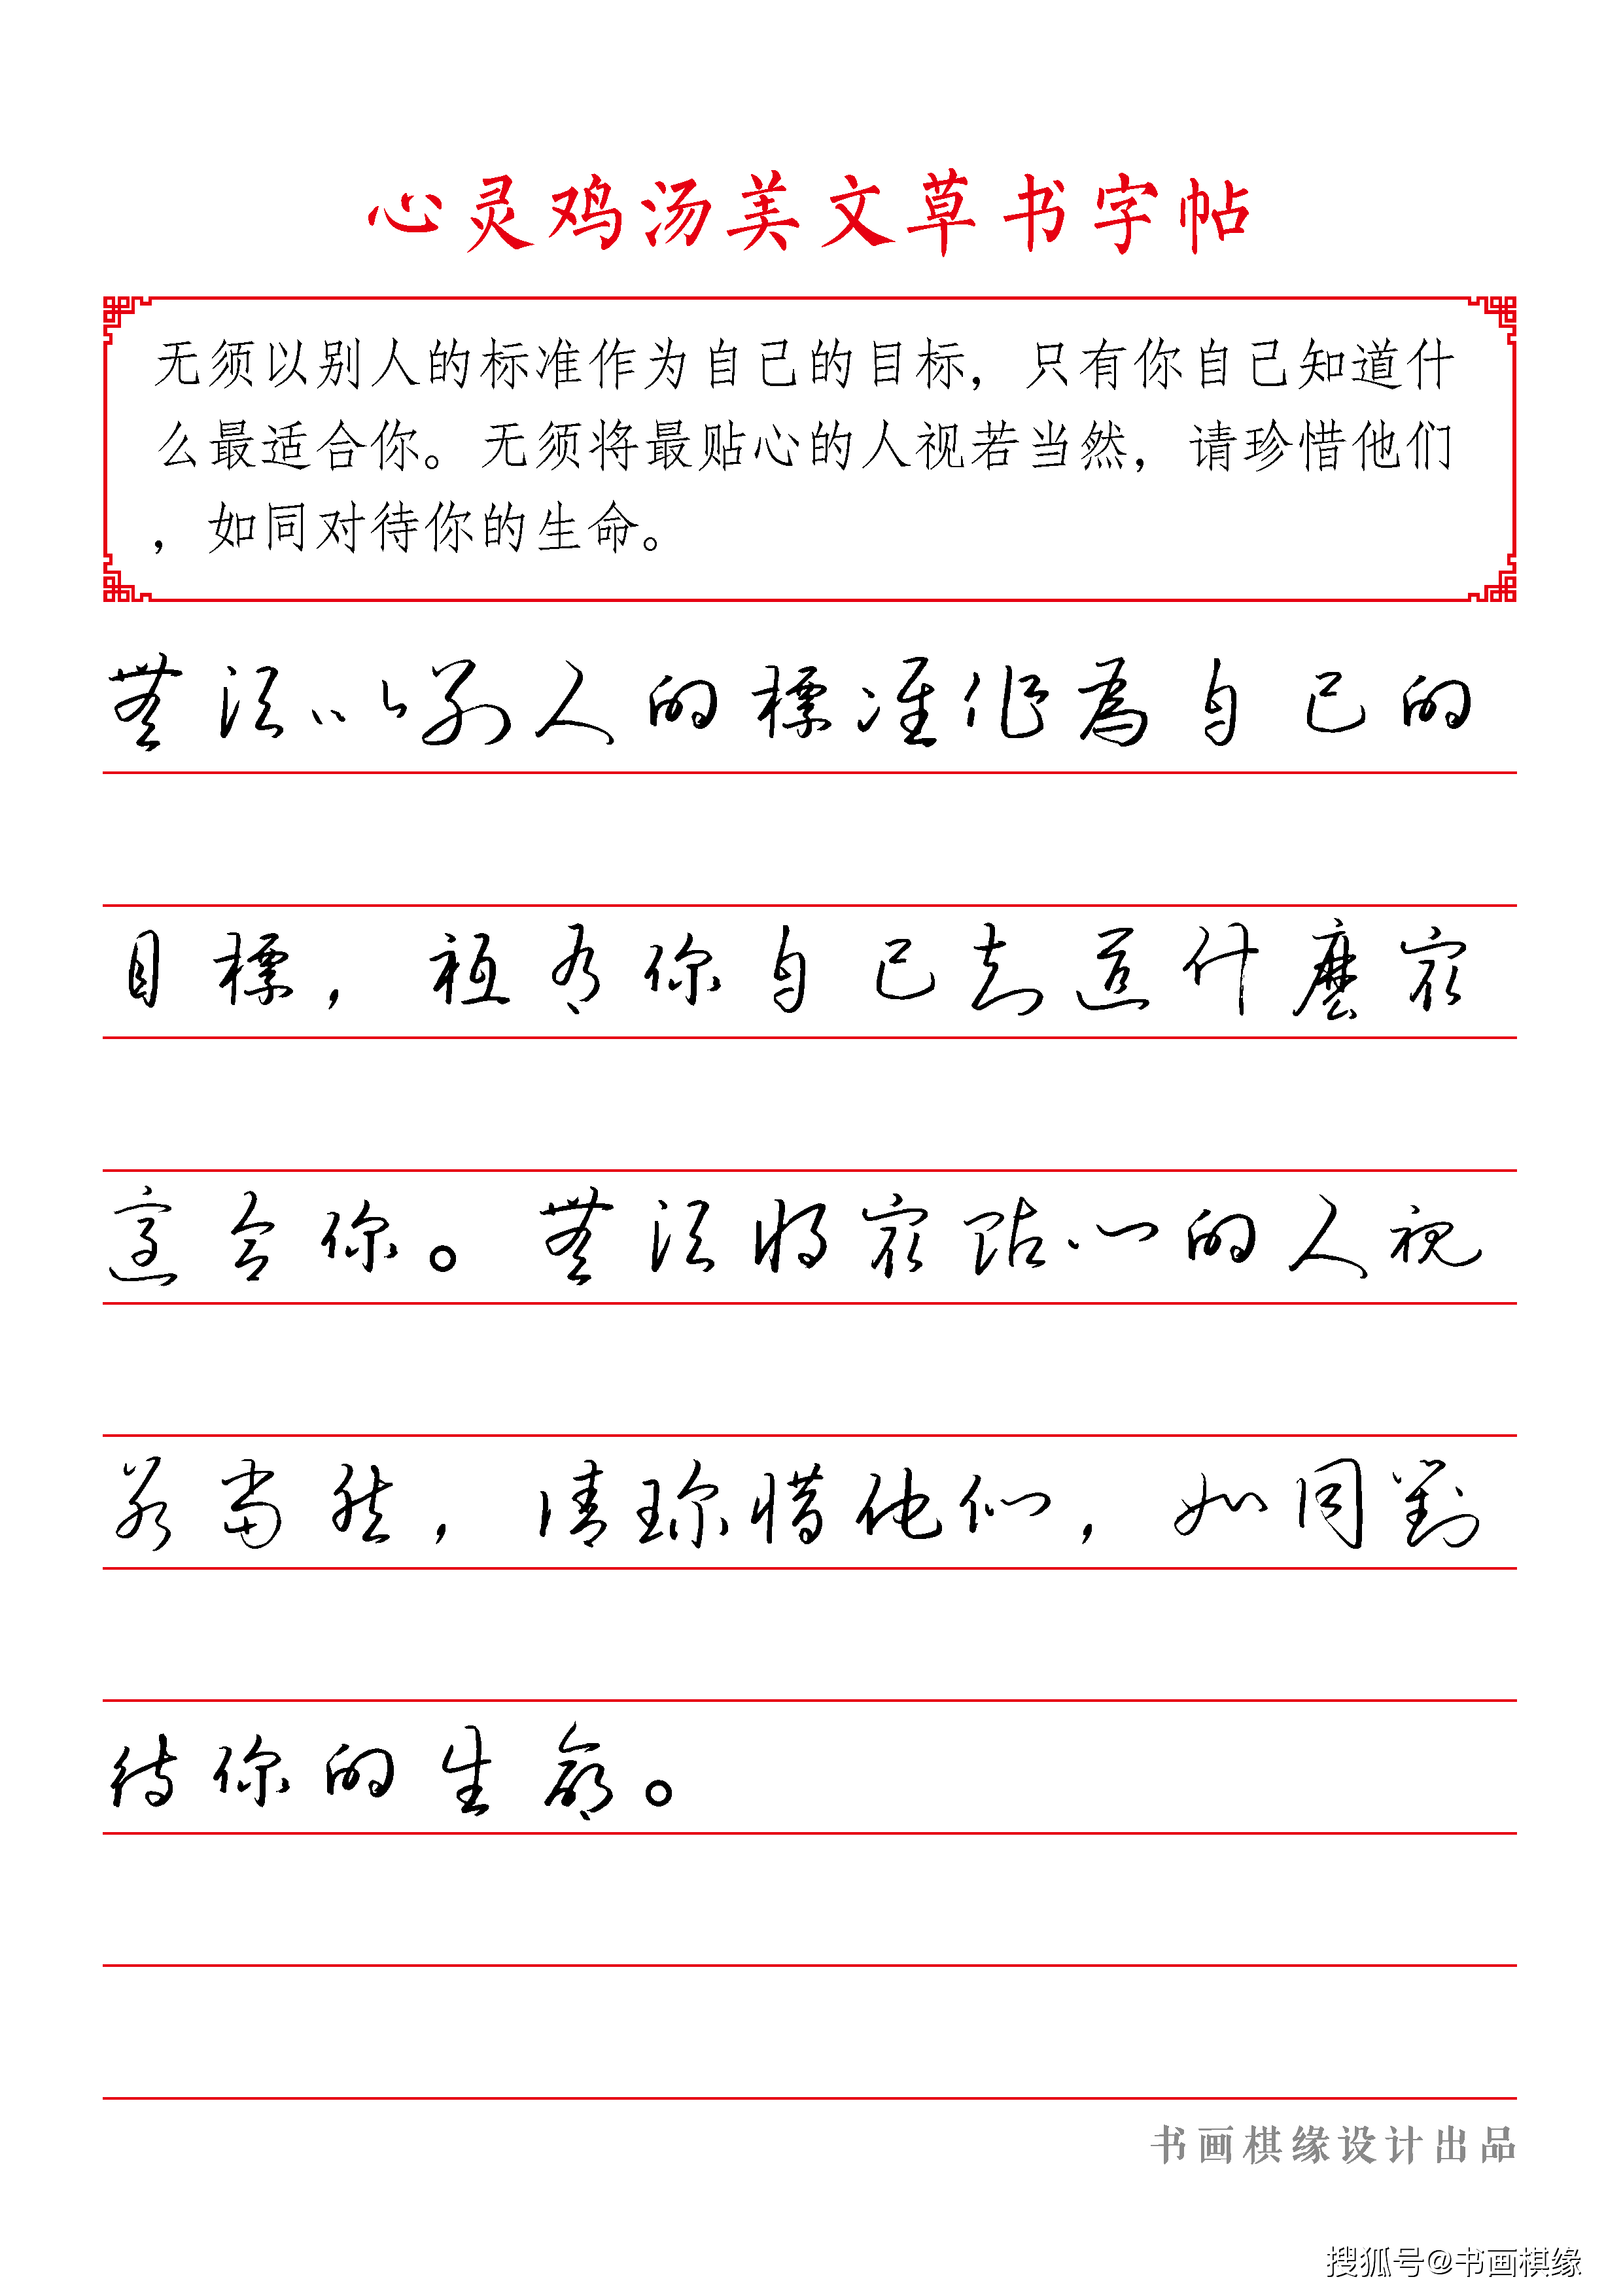 心灵鸡汤美文草书字帖
无须以别人的标准作为自己的目标，只有你自己知道什
么最适合你。无须将最贴心的人视若当然，请珍惜他们
，如同对待你的生命。
無须以别人的標准作為自己的
目標，祗有你自己知道什麽最
適合你。無须将最贴心的人视
若當然，请珍惜他们，如同對
待你的生命。
书画棋缘设计出品
搜狐号@书画棋缘